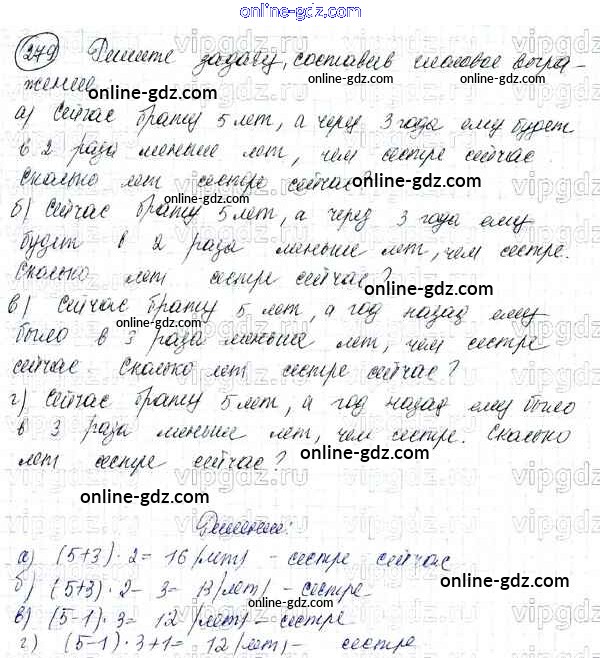 online-gdz.com
279 Решите задачу, составив числовое выра-
жение.
online-gdz.com
а) Сейчас брату 5 лет, а через 3 года ему будет
в 2 раза меньше лет, чем сестре сейчас.
Сколько лет сестре сейчас?
online-gdz.com
б) Сейчас брату 5 лет, а через 3 года ему
online-gdz.com
будет в 2 раза меньше лет, чем сестре.
online-gdz.com
Сколько лет сестре сейчас?
online-gdz.com
в) Сейчас брату 5 лет, а год назад ему
online-gdz.com
было в 3 раза меньше лет, чем сестре
сейчас. Сколько лет сестре сейчас?
online-gdz.com
г) Сейчас брату 5 лет, а год назад ему было
в 3 раза меньше лет, чем сестре. Сколько
online-gdz.com
лет сестре сейчас?
online-gdz.com
online-gdz.com
Решение:
online-gdz.com
а) (5+3)·2=16 (лет) - сестре сейчас
б) (5+3)·2-3=13 (лет) - сестре.
online-gdz.com
в) (5-1)·3=12 (лет) - сестре
online-gdz.com
г) (5-1)·3+1=12 (лет) - сестре
online-gdz.com